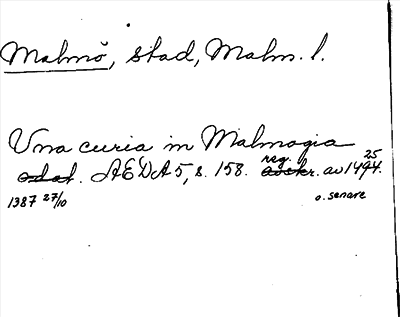 Malmö, stad, Malm. l.
Una curia in Malmogia
odat. AEDA 5, s. 158. reg. avskr. av 1494. 25
1387 27/10 o. senare